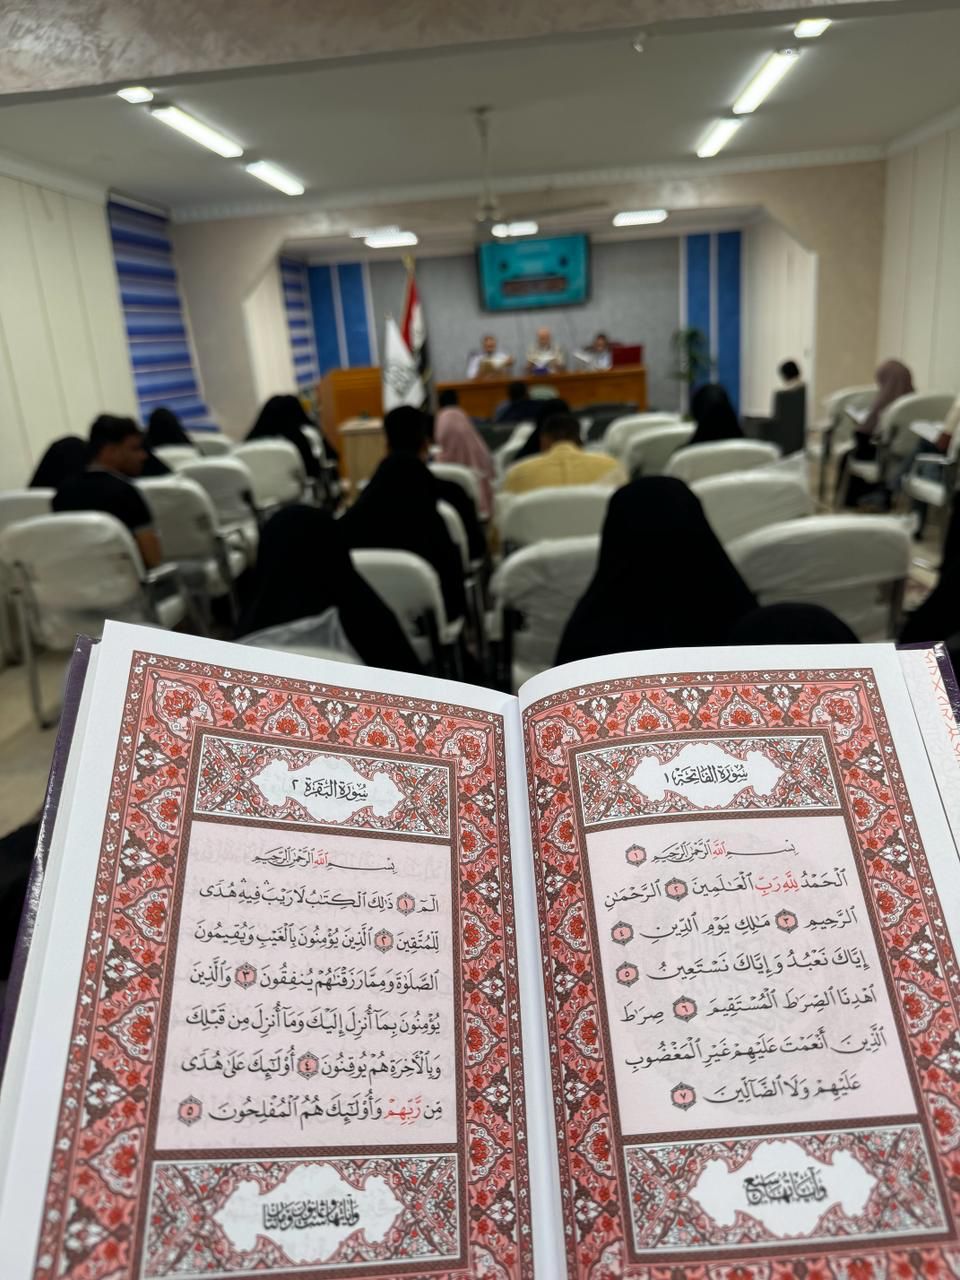 سُورَةُ الفَاتِحَةِ ١
بِسْمِ ٱللَّهِ ٱلرَّحْمَٰنِ ٱلرَّحِيمِ ١
ٱلْحَمْدُ لِلَّهِ رَبِّ ٱلْعَٰلَمِينَ ٢ ٱلرَّحْمَٰنِ
ٱلرَّحِيمِ ٣ مَٰلِكِ يَوْمِ ٱلدِّينِ ٤
إِيَّاكَ نَعْبُدُ وَإِيَّاكَ نَسْتَعِينُ ٥
ٱهْدِنَا ٱلصِّرَٰطَ ٱلْمُسْتَقِيمَ ٦ صِرَٰطَ
ٱلَّذِينَ أَنْعَمْتَ عَلَيْهِمْ غَيْرِ ٱلْمَغْضُوبِ
عَلَيْهِمْ وَلَا ٱلضَّآلِّينَ ٧
وَآيَاتُهَا سَبْعٌ
سُورَةُ البَقَرَةِ ٢
بِسْمِ ٱللَّهِ ٱلرَّحْمَٰنِ ٱلرَّحِيمِ
الٓمٓ ١ ذَٰلِكَ ٱلْكِتَٰبُ لَا رَيْبَۛ فِيهِۛ هُدًى
لِّلْمُتَّقِينَ ٢ ٱلَّذِينَ يُؤْمِنُونَ بِٱلْغَيْبِ وَيُقِيمُونَ
ٱلصَّلَوٰةَ وَمِمَّا رَزَقْنَٰهُمْ يُنفِقُونَ ٣ وَٱلَّذِينَ
يُؤْمِنُونَ بِمَآ أُنزِلَ إِلَيْكَ وَمَآ أُنزِلَ مِن قَبْلِكَ
وَبِٱلْءَاخِرَةِ هُمْ يُوقِنُونَ ٤ أُوْلَٰٓئِكَ عَلَىٰ هُدًى
مِّن رَّبِّهِمْ وَأُوْلَٰٓئِكَ هُمُ ٱلْمُفْلِحُونَ ٥
وَآيَاتُهَا سِتٌّ وَثَمَانُونَ وَمِائَتَانِ